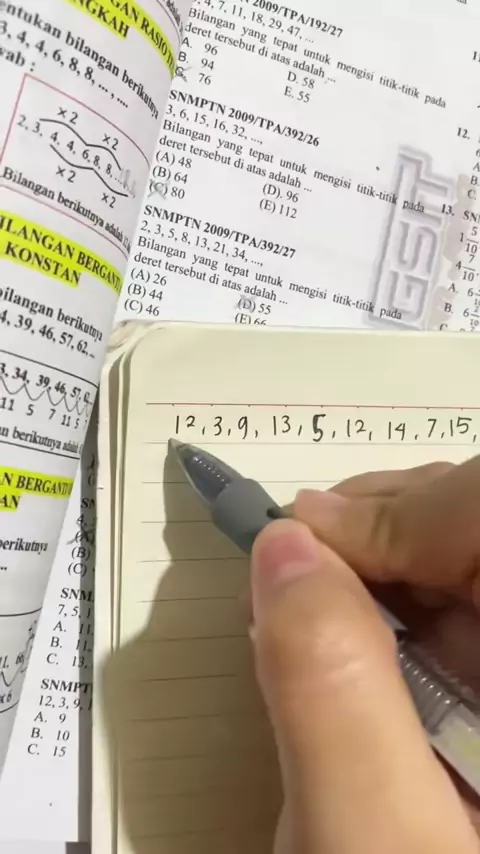 GAN RASIO
NGKAH
entukan bilangan berikutnya
3, 4, 4, 6, 8, 8, ..., ....
vab :
×2 ×2
2, 3, 4, 4, 6, 8, 8
×2 ×2
Bilangan berikutnya
ILANGAN BERGANTI
KONSTAN
bilangan berikutnya
4, 39, 46, 57, 62, ..
3, 34, 39, 46, 57, 6
11 5 7 11 5
n berikutnya
N BERGANTI
AN
berikutnya
2009/TPA/192/27
4, 7, 11, 18, 29, 47, ...
Bilangan yang tepat untuk mengisi titik-titik pada
deret tersebut di atas adalah ...
A. 96
B. 94
C. 76
D. 58
E. 55
SNMPTN 2009/TPA/392/26
3, 6, 15, 16, 32, ...,
Bilangan yang tepat untuk mengisi titik-titik pada
deret tersebut di atas adalah ...
(A) 48
(B) 64
(C) 80
(D). 96
(E) 112
SNMPTN 2009/TPA/392/27
2, 3, 5, 8, 13, 21, 34, ...,
Bilangan yang tepat untuk mengisi titik-titik pada
deret tersebut di atas adalah ...
(A) 26
(B) 44
(C) 46
(D) 55
(E) 66
(B)
(C)
SNM
7, 5, 1
A. 11
B. 11
C. 13,
SNMPT
12, 3, 9, 1
A. 9
B. 10
C. 15
12.
A
B.
C.
13. SN
GSIT
12, 3, 9, 13, 5, 12, 14, 7, 15,